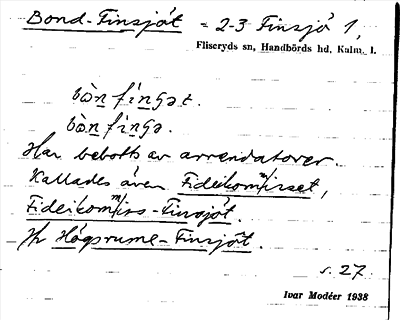 Bond-Finsjöt = 2-3 Finsjö 1,
Fliseryds sn, Handbörds hd, Kalm. l.
bòn fìnʃət.
bòn fìnʃə.
Har bebotts av arrendatorer.
Kallades även Fideikommisset,
Fideikommiss-Finsjöt.
Jfr Högsrums-Finsjöt.
s. 27.
Ivar Modéer 1938